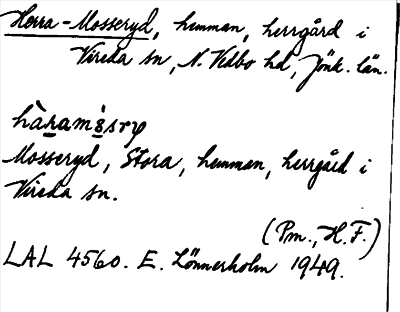 Herra-Mosseryd, hemman, herrgård i
Vireda sn, N. Vedbo hd, Jönk. län.
hàramòsry
Mosseryd, Stora, hemman, herrgård i
Vireda sn.
(Pm., H.F.)
LAL 4560. E. Lönnerholm 1949.